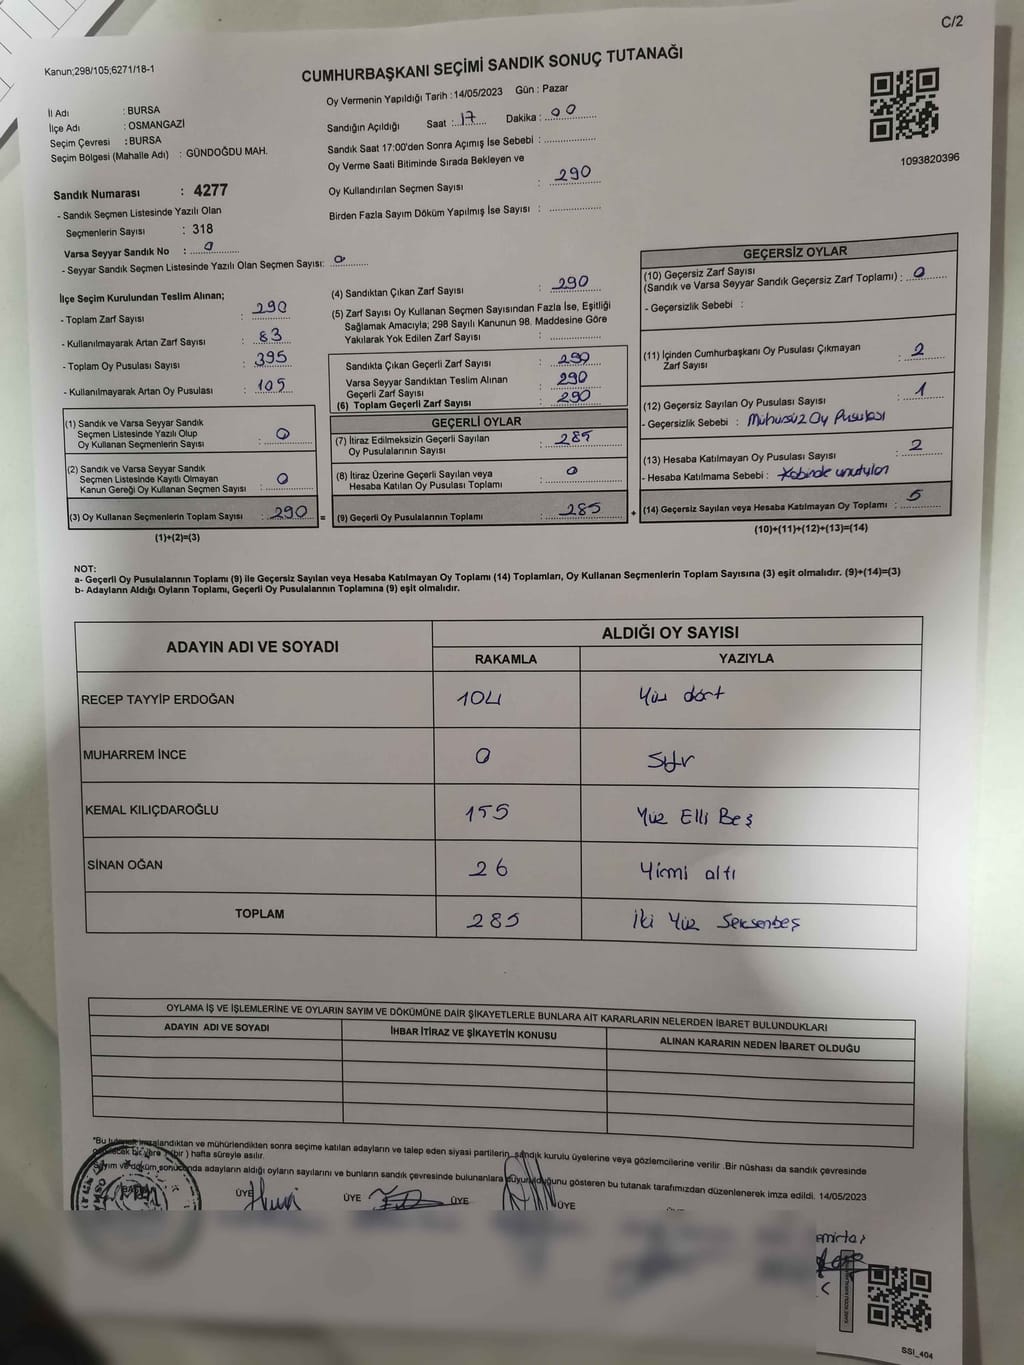 C/2
Kanun;298/105;6271/18-1
CUMHURBAŞKANI SEÇİMİ SANDIK SONUÇ TUTANAĞI
Oy Vermenin Yapıldığı Tarih : 14/05/2023 Gün : Pazar
İl Adı : BURSA
İlçe Adı : OSMANGAZİ
Seçim Çevresi : BURSA
Seçim Bölgesi (Mahalle Adı) : GÜNDOĞDU MAH.
Sandığın Açıldığı Saat : 17 Dakika : 00
Sandık Saat 17:00'den Sonra Açımış İse Sebebi :
Oy Verme Saati Bitiminde Sırada Bekleyen ve
Oy Kullandırılan Seçmen Sayısı : 290
Birden Fazla Sayım Döküm Yapılmış İse Sayısı :
1093820396
Sandık Numarası : 4277
- Sandık Seçmen Listesinde Yazılı Olan
Seçmenlerin Sayısı : 318
Varsa Seyyar Sandık No : 0
- Seyyar Sandık Seçmen Listesinde Yazılı Olan Seçmen Sayısı: 0
İlçe Seçim Kurulundan Teslim Alınan;
- Toplam Zarf Sayısı : 290
- Kullanılmayarak Artan Zarf Sayısı : 83
- Toplam Oy Pusulası Sayısı : 395
- Kullanılmayarak Artan Oy Pusulası : 105
(1) Sandık ve Varsa Seyyar Sandık
Seçmen Listesinde Yazılı Olup
Oy Kullanan Seçmenlerin Sayısı : 0
(2) Sandık ve Varsa Seyyar Sandık
Seçmen Listesinde Kayıtlı Olmayan
Kanun Gereği Oy Kullanan Seçmen Sayısı : 0
(3) Oy Kullanan Seçmenlerin Toplam Sayısı : 290 =
(1)+(2)=(3)
(4) Sandıktan Çıkan Zarf Sayısı : 290
(5) Zarf Sayısı Oy Kullanan Seçmen Sayısından Fazla İse, Eşitliği
Sağlamak Amacıyla; 298 Sayılı Kanunun 98. Maddesine Göre
Yakılarak Yok Edilen Zarf Sayısı :
Sandıkta Çıkan Geçerli Zarf Sayısı : 290
Varsa Seyyar Sandıktan Teslim Alınan
Geçerli Zarf Sayısı : 290
(6) Toplam Geçerli Zarf Sayısı : 290
GEÇERLİ OYLAR
(7) İtiraz Edilmeksizin Geçerli Sayılan
Oy Pusulalarının Sayısı : 285
(8) İtiraz Üzerine Geçerli Sayılan veya
Hesaba Katılan Oy Pusulası Toplamı : 0
(9) Geçerli Oy Pusulalarının Toplamı : 285 +
GEÇERSİZ OYLAR
(10) Geçersiz Zarf Sayısı
(Sandık ve Varsa Seyyar Sandık Geçersiz Zarf Toplamı) : 0
- Geçersizlik Sebebi :
(11) İçinden Cumhurbaşkanı Oy Pusulası Çıkmayan
Zarf Sayısı : 2
(12) Geçersiz Sayılan Oy Pusulası Sayısı : 1
- Geçersizlik Sebebi : Mühürsüz Oy Pusulası
(13) Hesaba Katılmayan Oy Pusulası Sayısı : 2
- Hesaba Katılmama Sebebi : Kabinde unutulan
(14) Geçersiz Sayılan veya Hesaba Katılmayan Oy Toplamı : 5
(10)+(11)+(12)+(13)=(14)
NOT:
a- Geçerli Oy Pusulalarının Toplamı (9) ile Geçersiz Sayılan veya Hesaba Katılmayan Oy Toplamı (14) Toplamları, Oy Kullanan Seçmenlerin Toplam Sayısına (3) eşit olmalıdır. (9)+(14)=(3)
b- Adayların Aldığı Oyların Toplamı, Geçerli Oy Pusulalarının Toplamına (9) eşit olmalıdır.
ADAYIN ADI VE SOYADI ALDIĞI OY SAYISI
RAKAMLA YAZIYLA
RECEP TAYYİP ERDOĞAN 104 Yüz dört
MUHARREM İNCE 0 Sıfır
KEMAL KILIÇDAROĞLU 155 Yüz Elli Beş
SİNAN OĞAN 26 Yirmi altı
TOPLAM 285 İki Yüz Seksenbeş
OYLAMA İŞ VE İŞLEMLERİNE VE OYLARIN SAYIM VE DÖKÜMÜNE DAİR ŞİKAYETLERLE BUNLARA AİT KARARLARIN NELERDEN İBARET BULUNDUKLARI
ADAYIN ADI VE SOYADI İHBAR İTİRAZ VE ŞİKAYETİN KONUSU ALINAN KARARIN NEDEN İBARET OLDUĞU
"Bu tutanak imzalandıktan ve mühürlendikten sonra seçime katılan adayların ve talep eden siyasi partilerin, sandık kurulu üyelerine veya gözlemcilerine verilir .Bir nüshası da sandık çevresinde
bir yere 1 (bir ) hafta süreyle asılır.
Sayım ve döküm sonucunda adayların aldığı oyların sayılarını ve bunların sandık çevresinde bulunanlara duyurulduğunu gösteren bu tutanak tarafımızdan düzenlenerek imza edildi. 14/05/2023
BAŞKAN ÜYE ÜYE ÜYE ÜYE
SSI_404